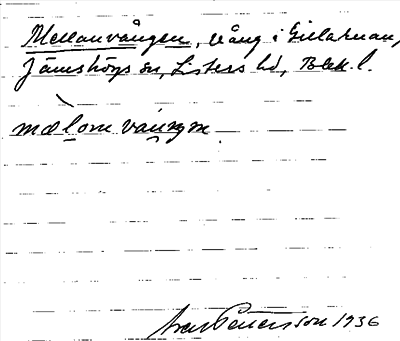 Mellanvången, vång i Gillaruan,
Jämshögs sn, Listers hd, Blek. l.
mælomvaŋ̣ṇm
Ivar Petersson 1936